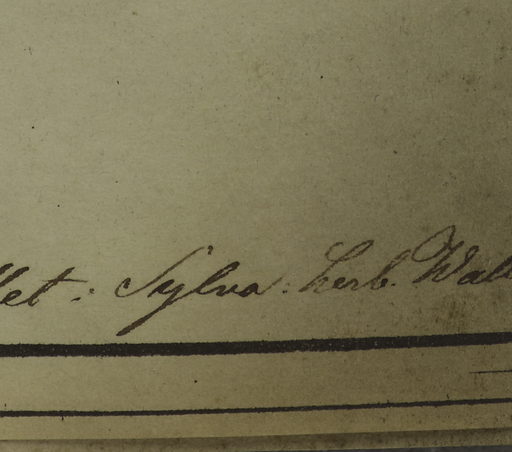 let : Sylva : herb. Wall